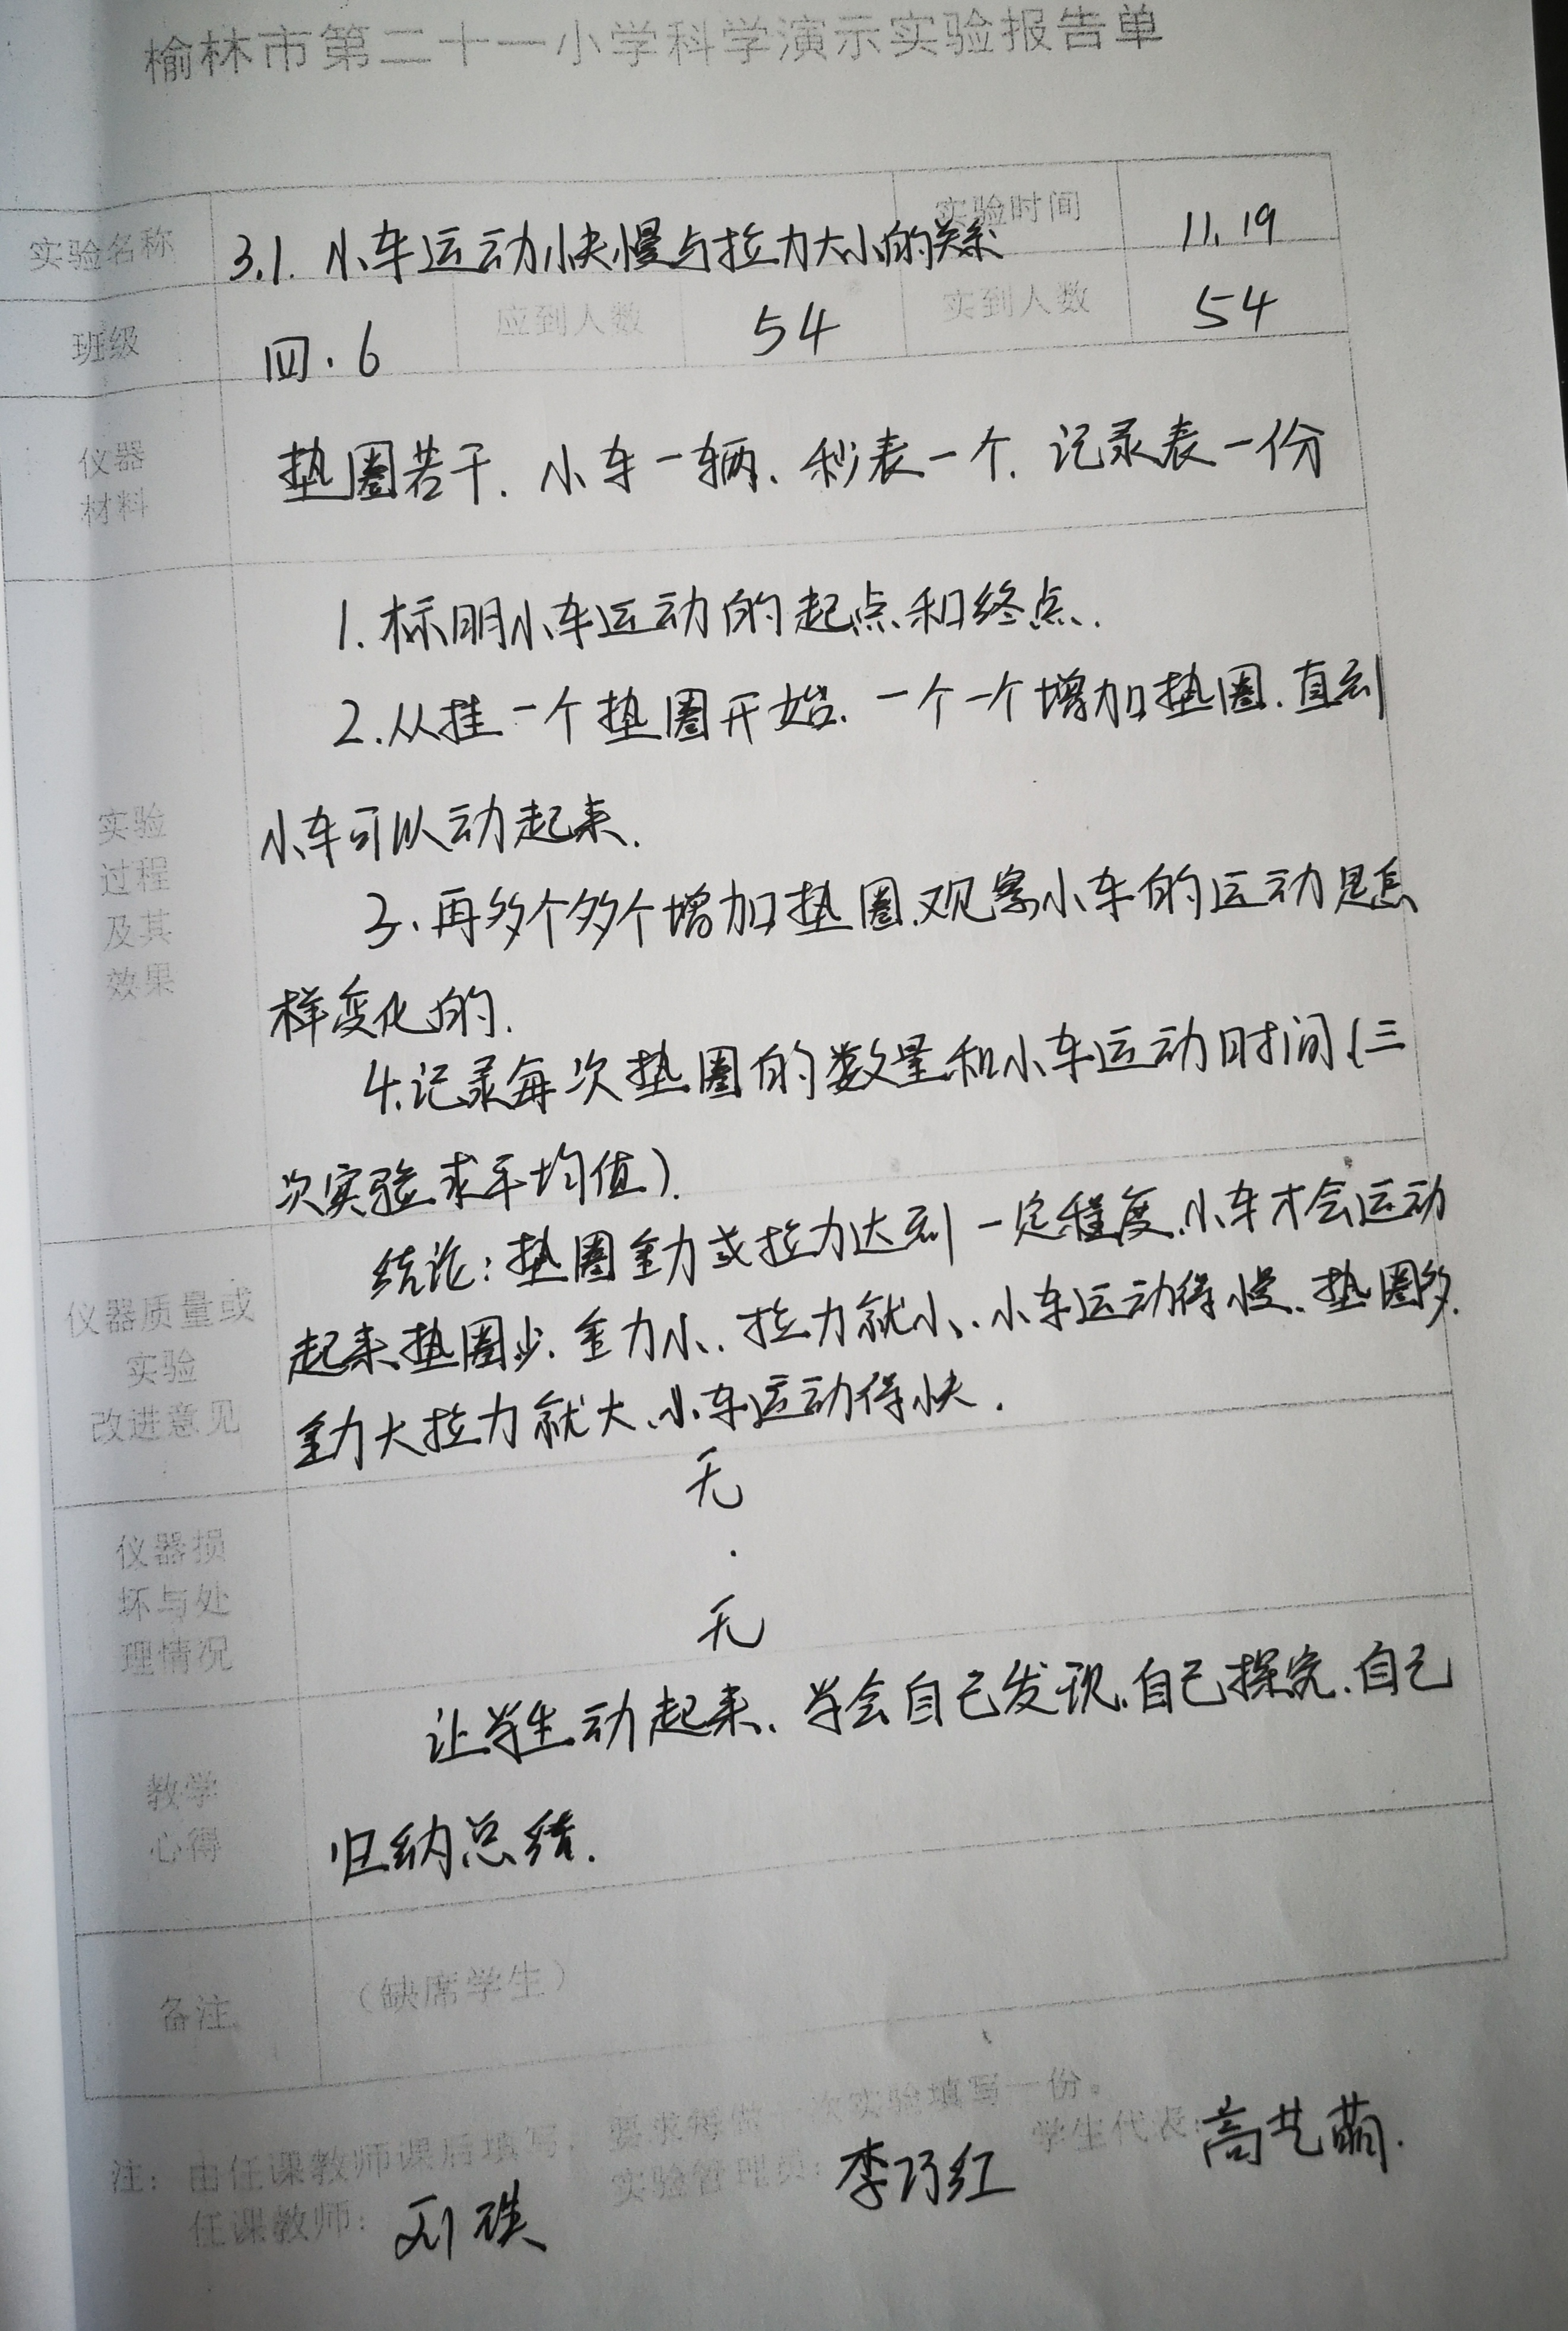 榆林市第二十一小学科学演示实验报告单
实验名称 3.1. 小车运动快慢与拉力大小的关系 实验时间 11.19
班级 四.6 应到人数 54 实到人数 54
仪器 垫圈若干. 小车一辆、秒表一个. 记录表一份
材料
1.标明小车运动的起点和终点.
2.从挂一个垫圈开始. 一个一个增加垫圈.直到
小车可以动起来.
实验
过程
及其
效果
3.再多个多个增加垫圈.观察小车的运动是怎
样变化的.
4.记录每次垫圈的数量和小车运动时间(三
次实验求平均值).
仪器质量或
实验
改进意见
结论:垫圈重力或拉力达到一定程度.小车才会运动
起来.垫圈少.重力小.拉力就小.小车运动得慢.垫圈多.
重力大拉力就大.小车运动得快.
无
仪器损
坏与处
理情况
无
教学
心得
让学生动起来、学会自己发现.自己探究.自己
归纳总结.
备注 (缺席学生)
注: 由任课教师课后填写, 要求每做一次实验填写一份。
任课教师: 刘 实验管理员: 李巧红 学生代表: 高艺萌.